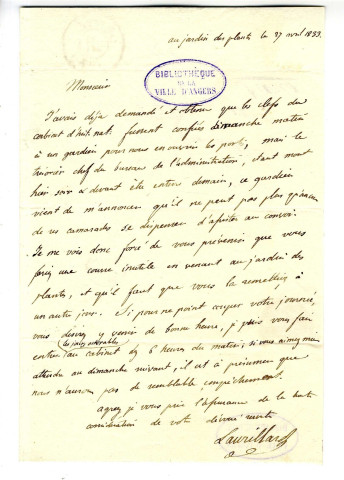 au jardin des plantes le 27 avril 1833.
BIBLIOTHÈQUE
DE LA
VILLE D'ANGERS
Monsieur
J'avais déja demandé et obtenu que les clefs du
cabinet d'hist. nat. fussent confiées dimanche matin
à un gardien pour nous en ouvrir les portes, mais le
trésorier chef du bureau de l'administration, étant mort
hier soir et devant être enterré demain, ce gardien
vient de m'annoncer qu'il ne peut pas plus qu'aucun
de ses camarades se dispenser d'assister au convoi.
Je me vois donc forcé de vous prévenir que vous
feriez une course inutile en venant au jardin des
plantes, et qu'il faut que vous la remettiez à
un autre jour. Si pour ne point couper votre journée,
vous désirez y venir de bonne heure, je puis vous faire
les jours ouvrables
entrer au cabinet dès 6 heures du matin, si vous aimez mieux
attendre au dimanche suivant, il est à présumer que
nous n'aurons pas de semblable empêchement.
agréez je vous prie l'assurance de la haute
considération de votre dévoué
Laurillard